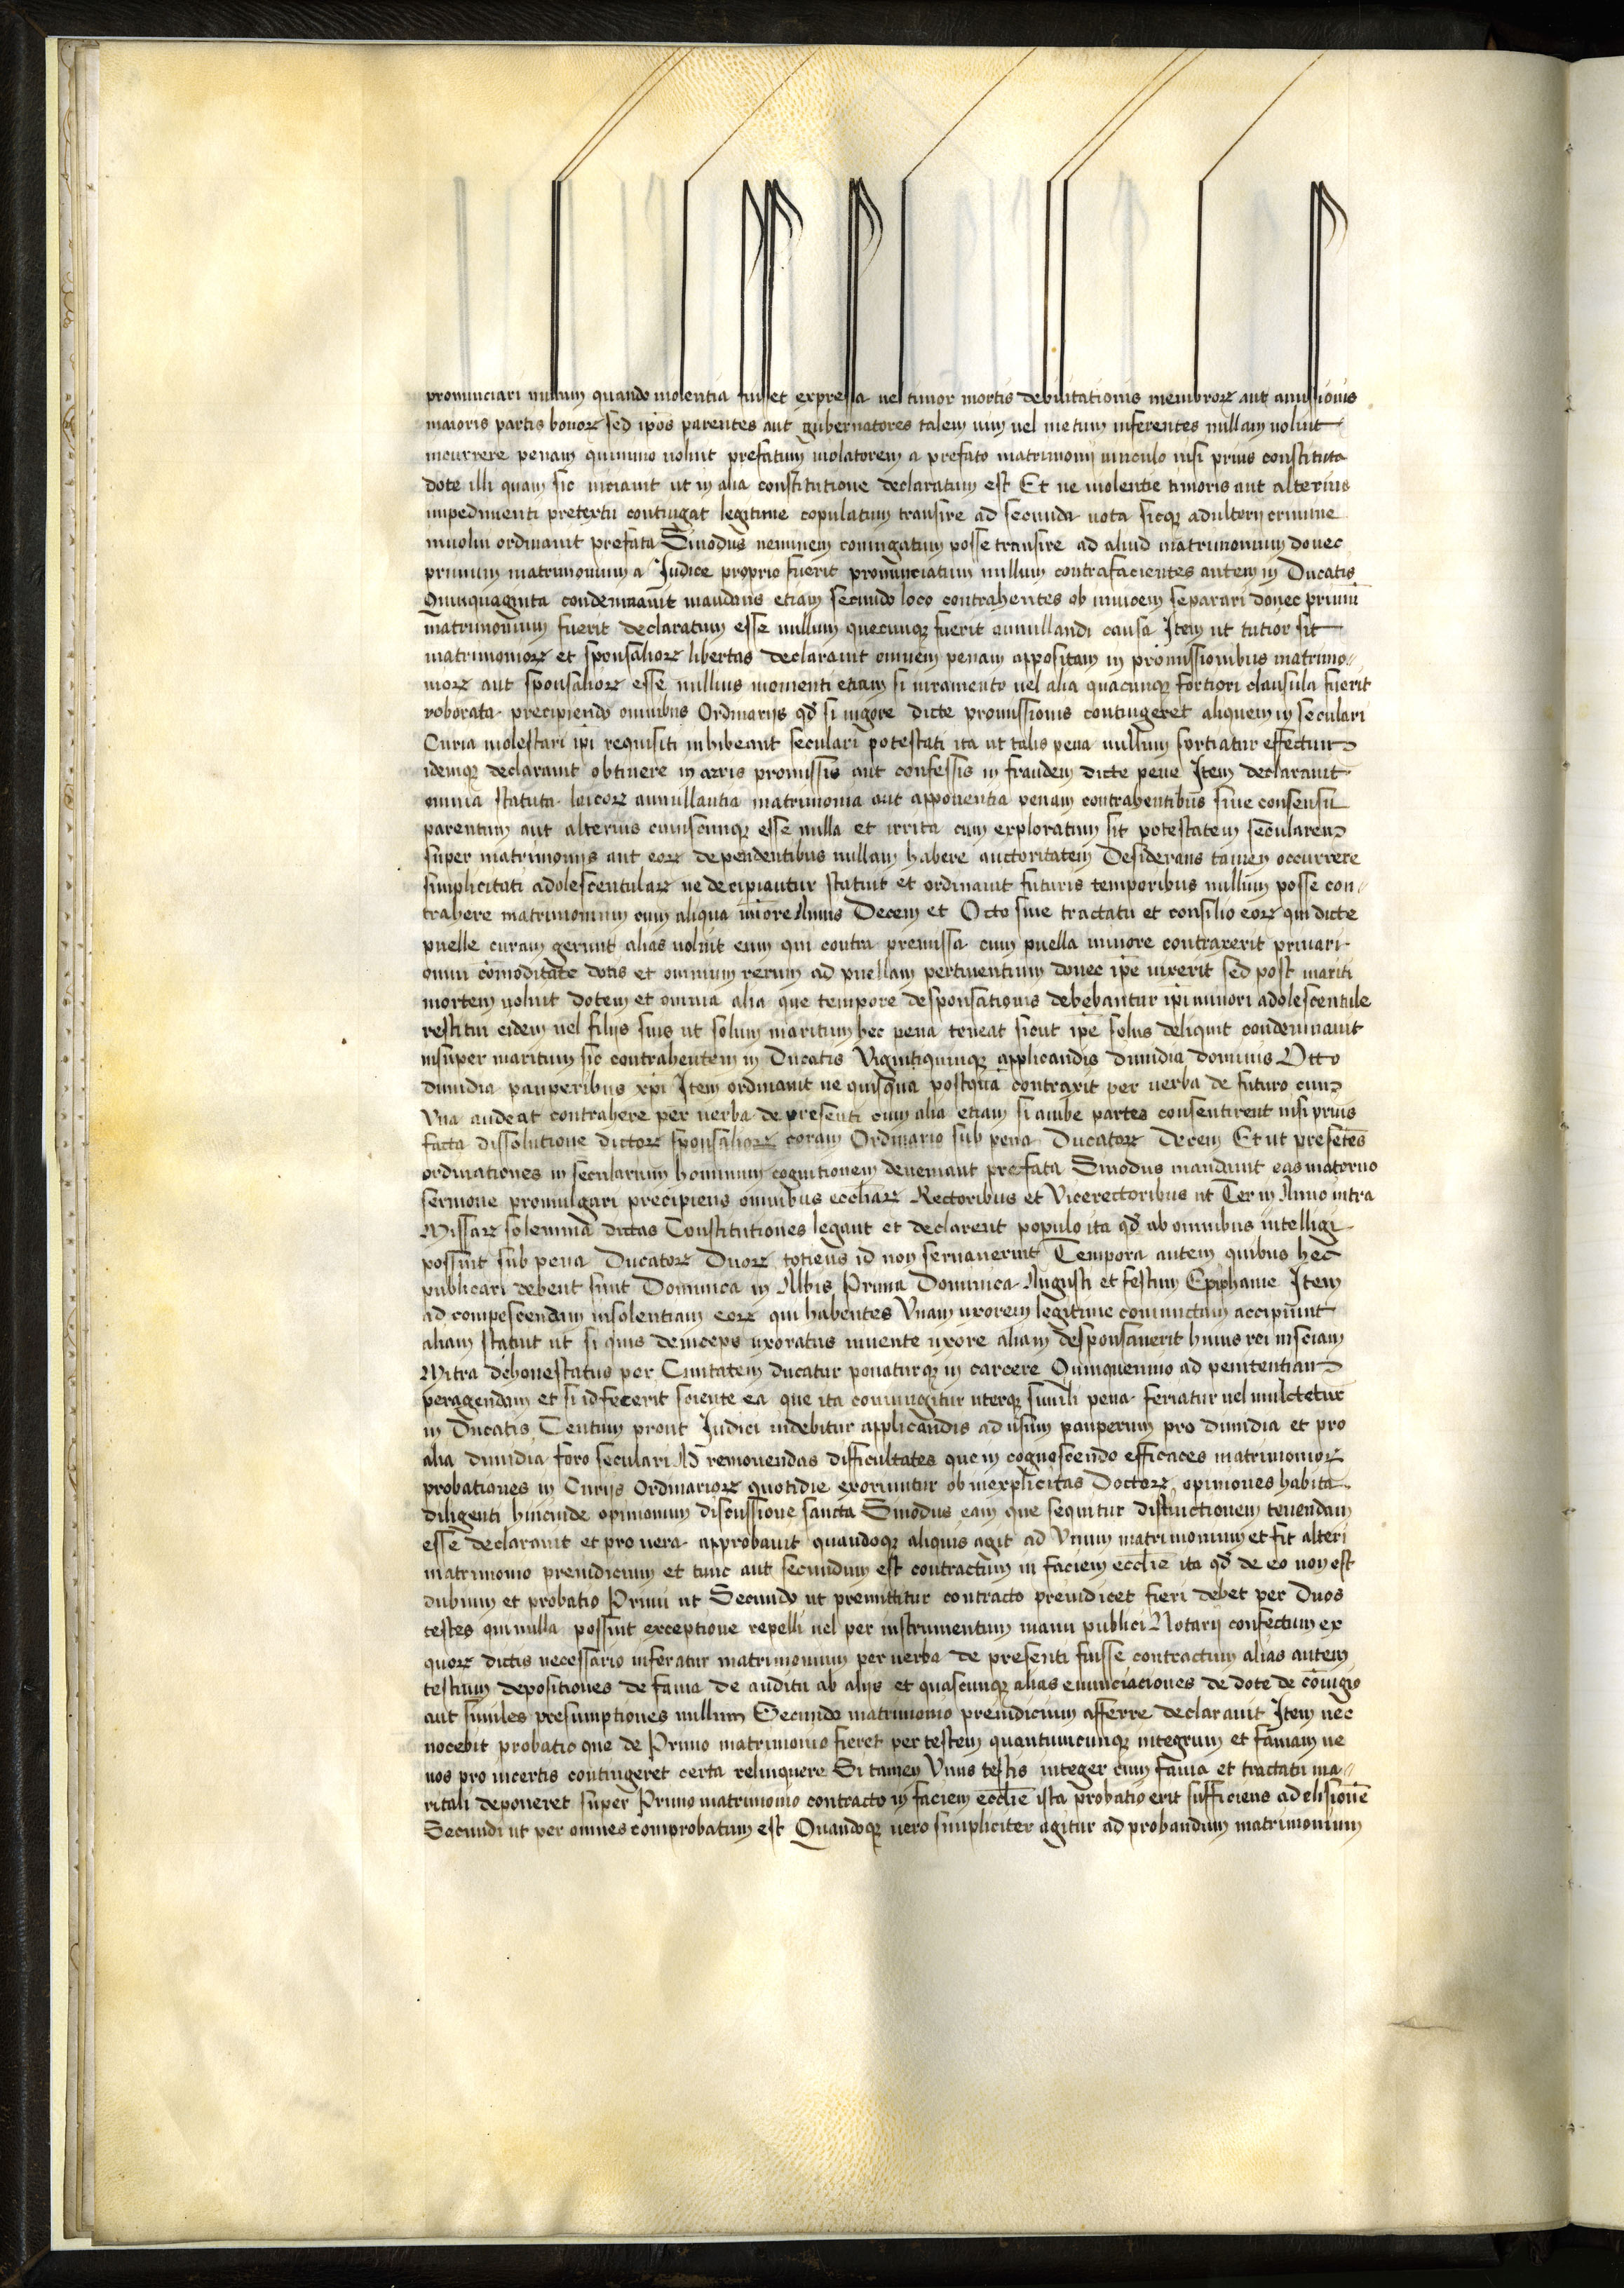 pronunciari nullum quando uiolentia fuisset expressa uel timor mortis debilitationis membroꝝ aut amissionis
maioris partis bonoꝝ sed ipos parentes aut gubernatores talem uim uel metum inferentes nullam uoluit
incurrere penam quinimo uoluit prefatum uiolatorem a prefato matrimonij uinculo nisi prius constituta
dote illi quam sic uiciauit ut in alia constitutione declaratum est Et ne uiolentie timoris aut alterius
impedimenti pretextu contingat legitime copulatum transire ad secunda uota sicqꝫ adulterij crimine
inuolui ordinauit prefata Sinodus neminem coniugatum posse transire ad aliud matrimonium donec
primum matrimonium a Iudice proprio fuerit pronunciatum nullum contrafacientes autem in Ducatis
Quinquaginta condemnauit mandans etiam secundo loco contrahentes ob inuicem separari donec primū
matrimonium fuerit declaratum esse nullum quecunqꝫ fuerit annullandi causa Item ut tutior sit
matrimonioꝝ et sponsalioꝝ libertas declarauit omnem penam appositam in promissionibus matrimo-
nioꝝ aut sponsalioꝝ esse nullius momenti etiam si iuramento uel alia quacunqꝫ fortiori clausula fuerit
roborata precipiendo omnibus Ordinarijs qđ si uigore dicte promissionis contingeret aliquem in seculari
Curia molestari ipi requisiti inhibeant seculari potestati ita ut talis pena nullum sortiatur effectum
idemqꝫ declarauit obtinere in arris promissis aut confessis in fraudem dicte pene Item declarauit
omnia statuta laicoꝝ annullantia matrimonia aut apponentia penam contrahentibus sine consensu
parentum aut alterius cuiuscunqꝫ esse nulla et irrita cum exploratum sit potestatem secularem
super matrimonijs aut eoꝝ dependentibus nullam habere auctoritatem Desiderans tamen occurrere
simplicitati adolescentulaꝝ ne decipiantur statuit et ordinauit futuris temporibus nullum posse con-
trahere matrimonium cum aliqua miōre Annis Decem et Octo sine tractatu et consilio eoꝝ qui dicte
puelle curam gerunt alias uoluit eum qui contra premissa cum puella minore contraxerit priuari
omni cōmoditate dotis et omnium rerum ad puellam pertinentium donec ipē uixerit sed post mariti
mortem uoluit dotem et omnia alia que tempore desponsationis debebantur ipi minori adolescentule
restitui eidem uel filijs suis ut solum maritum hec pena teneat sicut ipē solus deliquit condemnauit
insuper maritum sic contrahentem in Ducatis Vigintiquinqꝫ applicandis dimidia dominis Otto
dimidia pauperibus xpi Item ordinauit ne quisquā postquā contraxit per uerba de futuro cum
Vna audeat contrahere per uerba de presenti cum alia etiam si ambe partes consentirent nisi prius
facta dissolutione dictoꝝ sponsalioꝝ coram Ordinario sub pena Ducatoꝝ Decem Et ut presētes
ordinationes in secularium hominum cognitionem deueniant prefata Sinodus mandauit eas materno
sermone promulgari precipiens omnibus eccliaꝝ Rectoribus et Vicerectoribus ut Ter in Anno intra
Missaꝝ solemnia dictas Constitutiones legant et declarent populo ita qđ ab omnibus intelligi
possint sub pena Ducatoꝝ Duoꝝ totiens id non seruauerint Tempora autem quibus hec
publicari debent sunt Dominica in Albis Prima Dominica Augusti et festum Epiphanie Item
ad compescendam insolentiam eoꝝ qui habentes Vnam uxorem legitime coniunctam accipiunt
aliam statuit ut si quis deinceps uxoratus uiuente uxore aliam desponsauerit huius rei insciam
Mitra dehonestatus per Ciuitatem ducatur ponaturqꝫ in carcere Quinquennio ad penitentiam
peragendam et si id fecerit sciente ea que ita coniungitur uterqꝫ simili pena feriatur uel mulctetur
in Ducatis Centum prout Iudici uidebitur applicandis ad usum pauperum pro dimidia et pro
alia dimidia foro seculari Ad remouendas difficultates que in cognoscendo efficaces matrimonioꝝ
probationes in Curijs Ordinarioꝝ quotidie exoriuntur ob inexplicitas Doctoꝝ opiniones habita
diligenti hincinde opinionum discussione sancta Sinodus eam que sequitur distinctionem tenendam
esse declarauit et pro uera approbauit quandoqꝫ aliquis agit ad Vnum matrimonium et fit alteri
matrimonio preiudicium et tunc aut secundum est contractum in faciem ecclie ita qđ de eo non est
dubium et probatio Primi ut Secundo ut premittitur contracto preiudicet fieri debet per Duos
testes qui nulla possint exceptione repelli uel per instrumentum manu publici Notarij confectum ex
quoꝝ dictis necessario inferatur matrimonium per uerba de presenti fuisse contractum alias autem
testium depositiones de fama de auditu ab alijs et quascunqꝫ alias enunciationes de dote de cōiugio
aut similes presumptiones nullum Secundo matrimonio preiudicium afferre declarauit Item nec
nocebit probatio que de Primo matrimonio fieret per testem quantumcunqꝫ integrum et famam ne
nos pro incertis contingeret certa relinquere Si tamen Vnus testis integer cum fama et tractatu ma-
ritali deponeret super Primo matrimonio contracto in faciem ecclie ista probatio erit sufficiens ad elisionē
Secundi ut per omnes comprobatum est Quandoqꝫ uero simpliciter agitur ad probandum matrimonium